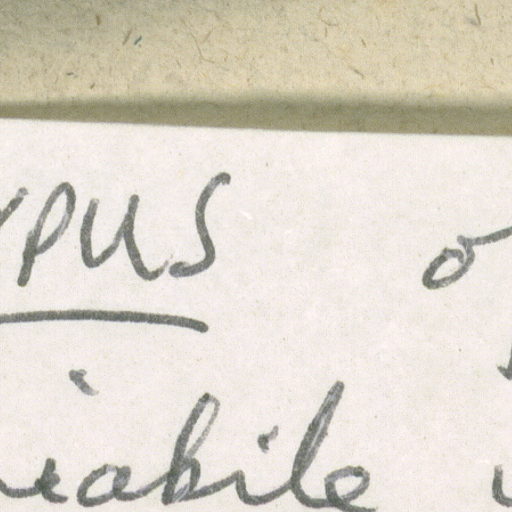 PUS o
iabile